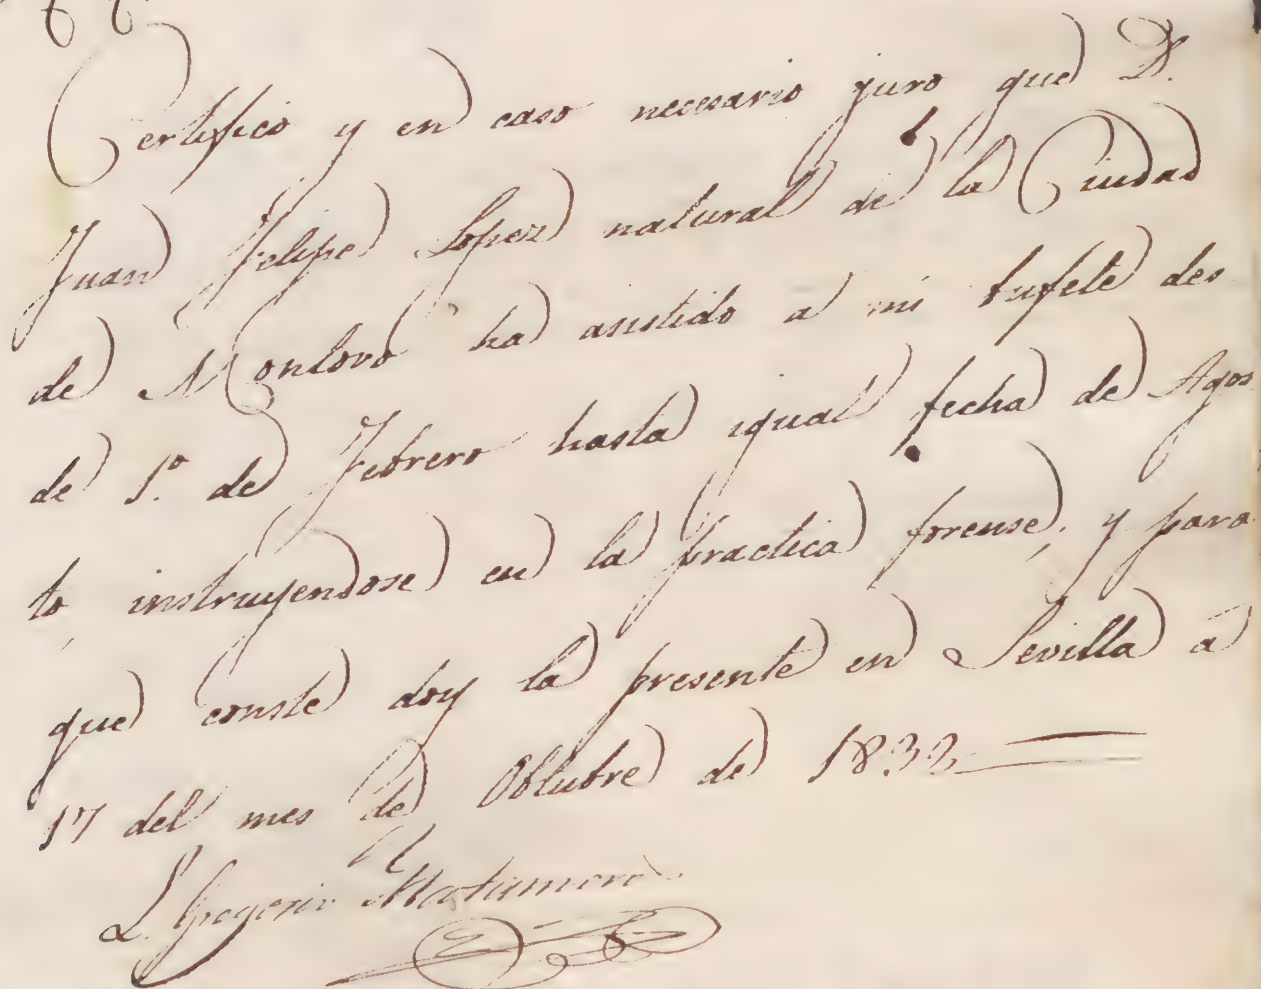 Certifico y en caso necesario juro que D.
Juan Felipe Lopez natural de la Ciudad
de Monlova ha asistido a mi bufete des
de 1º de Febrero hasta igual fecha de Agos
to instruyendose en la practica forense; y para
que conste doy la presente en Sevilla a
17 del mes de Obtubre de 1833
L. Gregorio Matamoro